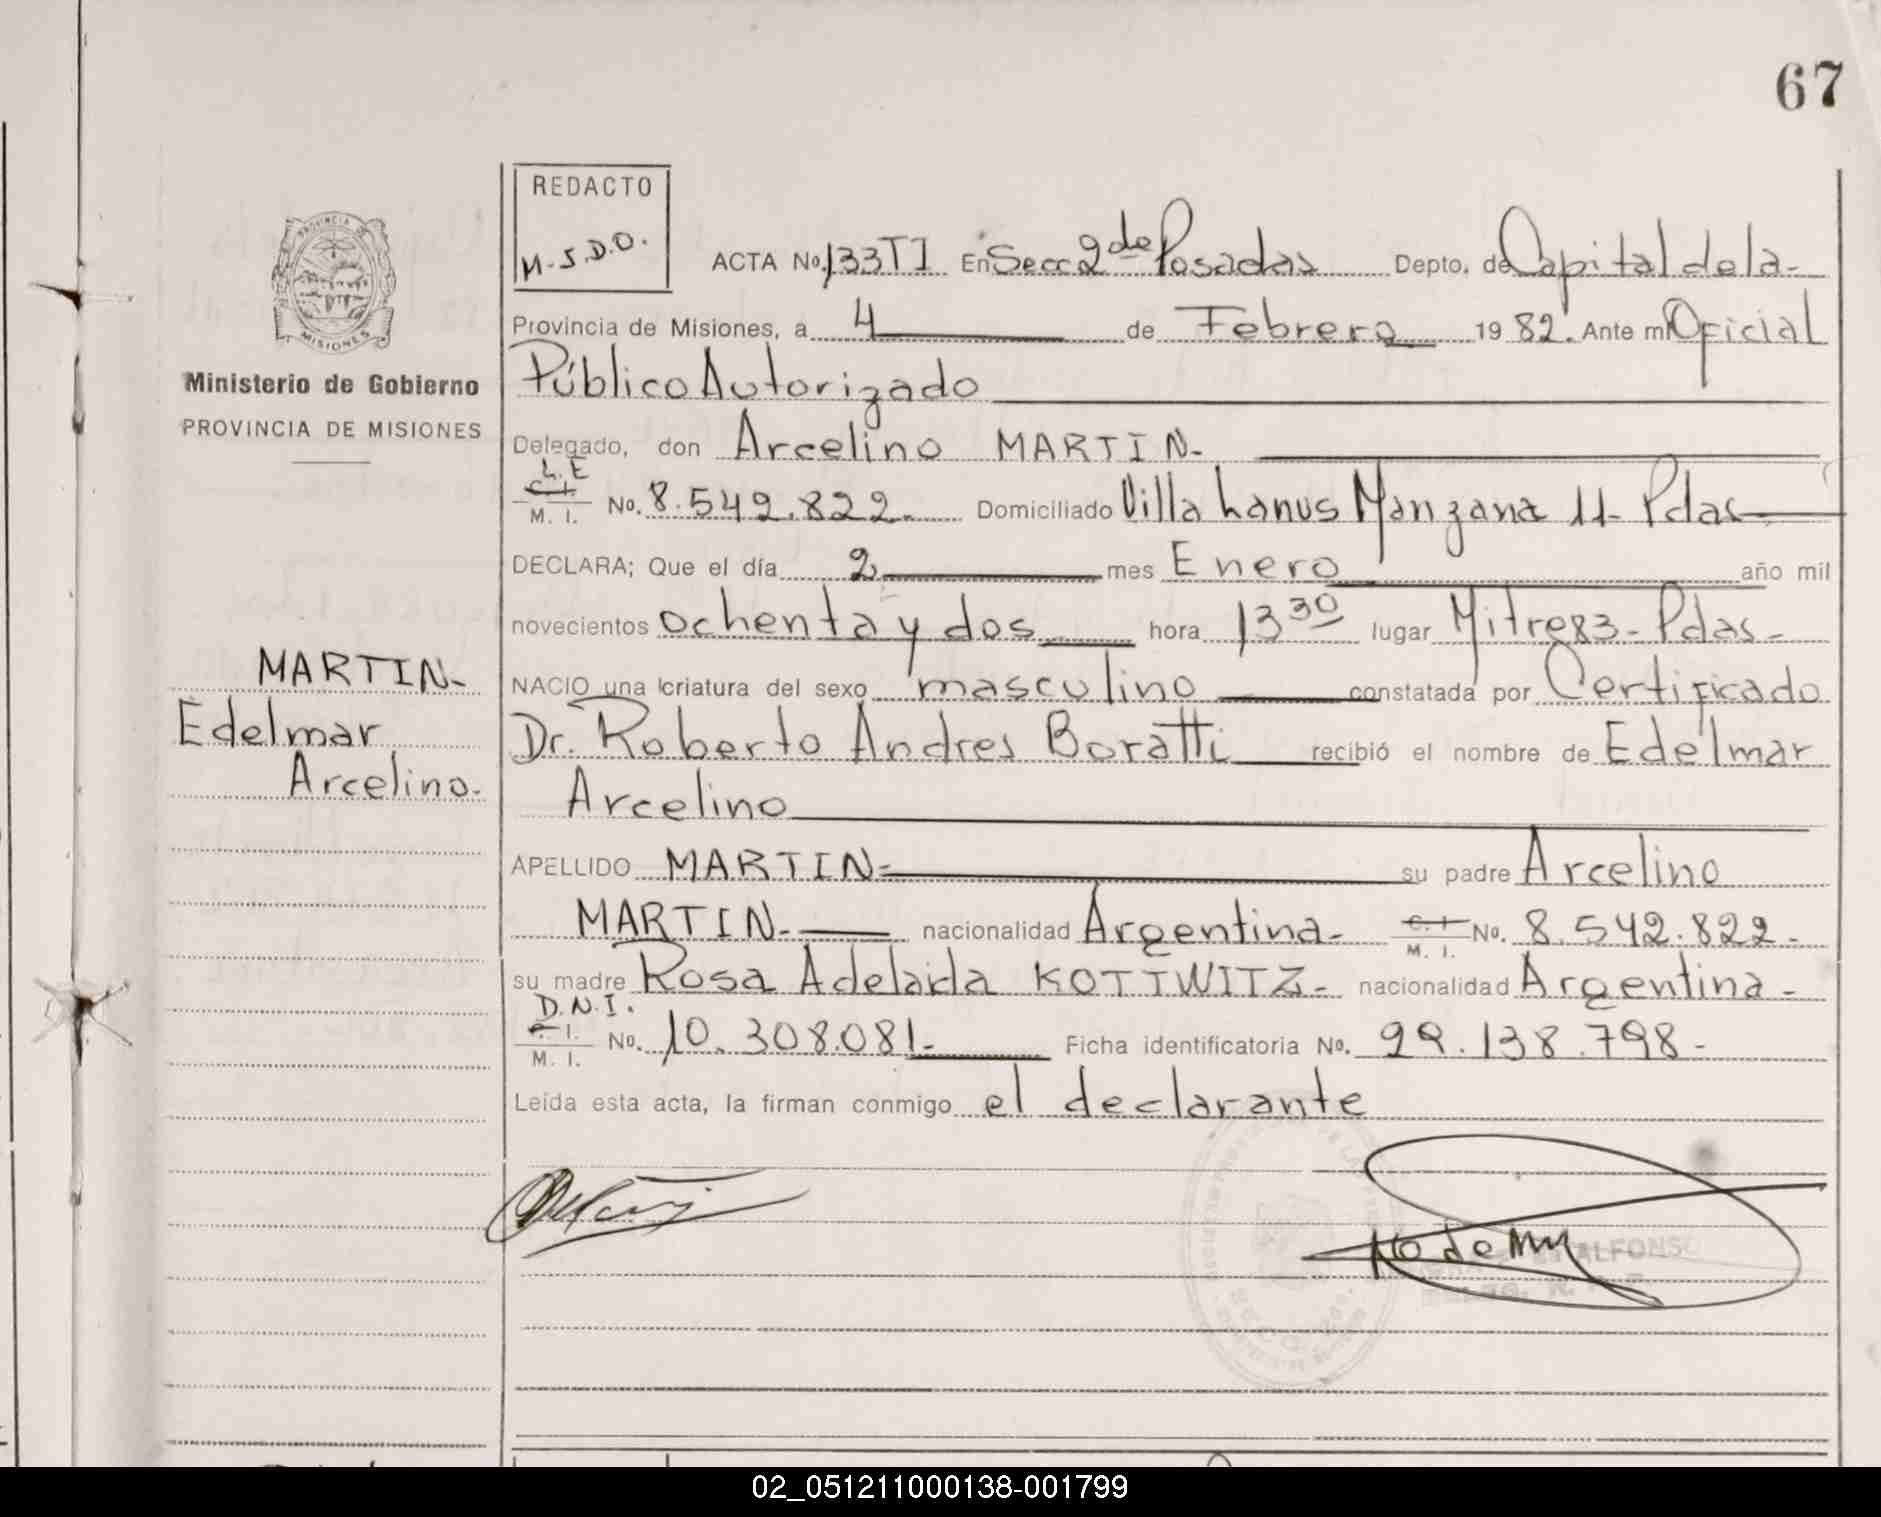 67
REDACTO
M.S.D.O.
ACTA No. 133TI En Secc 2da Posadas Depto. de Capital de la-
PROVINCIA
MISIONES
Provincia de Misiones, a 4 de Febrero 1982. Ante mi Oficial
Ministerio de Gobierno
PROVINCIA DE MISIONES
Público Autorizado
Delegado, don Arcelino MARTIN-
L.E
C.I.
M. I. No. 8.542.822.- Domiciliado Villa Lanus Manzana 11- Pdas
DECLARA; Que el día 2 mes Enero año mil
novecientos ochenta y dos hora 13 30 lugar Mitre 83- Pdas-
MARTIN-
Edelmar
Arcelino.-
NACIO una criatura del sexo masculino constatada por Certificado
Dr. Roberto Andres Boratti recibió el nombre de Edelmar
Arcelino
APELLIDO MARTIN- su padre Arcelino
MARTIN.- nacionalidad Argentina- C.I. M. I. No. 8.542.822.-
su madre Rosa Adelaida KOTTWITZ- nacionalidad Argentina-
D.N.I.
C.I.
M. I. No. 10.308.081.- Ficha identificatoria No. 29.138.798-
Leída esta acta, la firman conmigo el declarante
ALFONSO
02_051211000138-001799